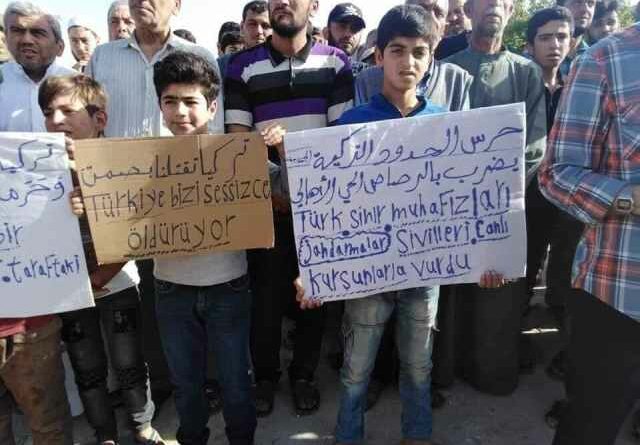 تركيا
وحرمه
bir
.taraftaki
تركيا تقتلنا بصمت
Türkiye bizi sessizce
öldürüyor
حرس الحدود التركية
يضرب بالرصاص الحي الأهالي
Türk sinir muhafızları
Jandarmalar Sivilleri canlı
kurşunlarla vurdu